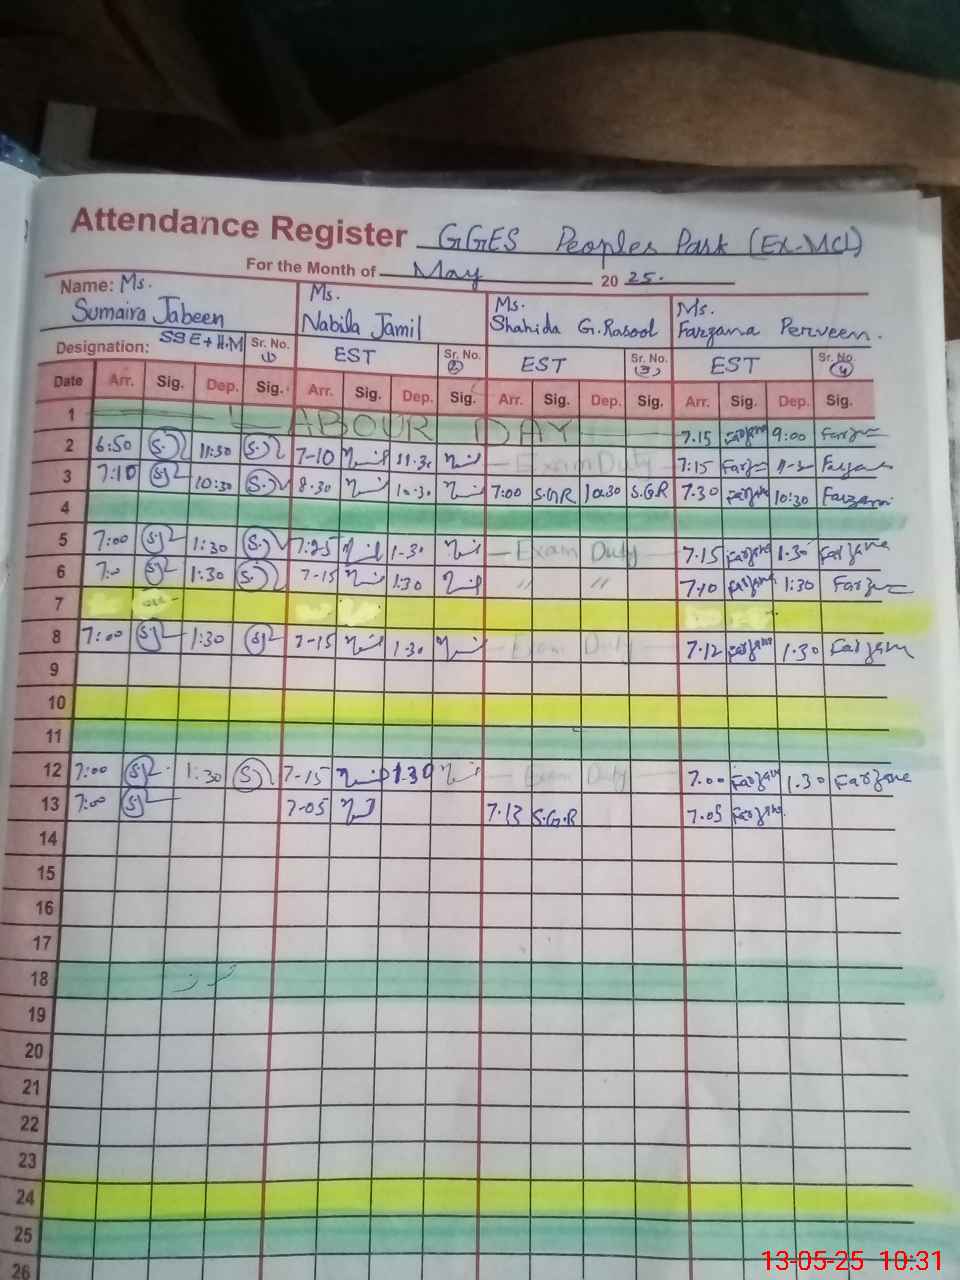 Attendance Register GGES Peoples Park (Ex-MCL)
For the Month of May 2025.
Name: Ms. Sumaira Jabeen Ms. Nabila Jamil Ms. Shahida G. Rasool Ms. Farzana Perveen.
Designation: SSE+H.M Sr. No. 1 EST Sr. No. 2 EST Sr. No. 3 EST Sr. No. 4
Date Arr. Sig. Dep. Sig. Arr. Sig. Dep. Sig. Arr. Sig. Dep. Sig. Arr. Sig. Dep. Sig.
1 LABOUR DAY 7.15 9:00
2 6:50 11:30 7-10 11.30 Exam Duty 7:15
3 7:10 10:30 8.30 10.30 7:00 S.G.R 10:30 S.G.R 7.30 10:30
4
5 7:00 1:30 7:25 1.30 Exam Duty 7.15 1.30
6 7:0 1:30 7-15 1:30 " " 7.10 1:30
7
8 7:00 1:30 7-15 1.30 Exam Duty 7.12 1.30
9
10
11
12 7:00 1:30 7-15 1.30 Exam Duty 7.00 1.30 Farzana
13 7:00 7-05 7.13 S.G.R 7.05
14
15
16
17
18
19
20
21
22
23
24
25
26
13-05-25 10:31